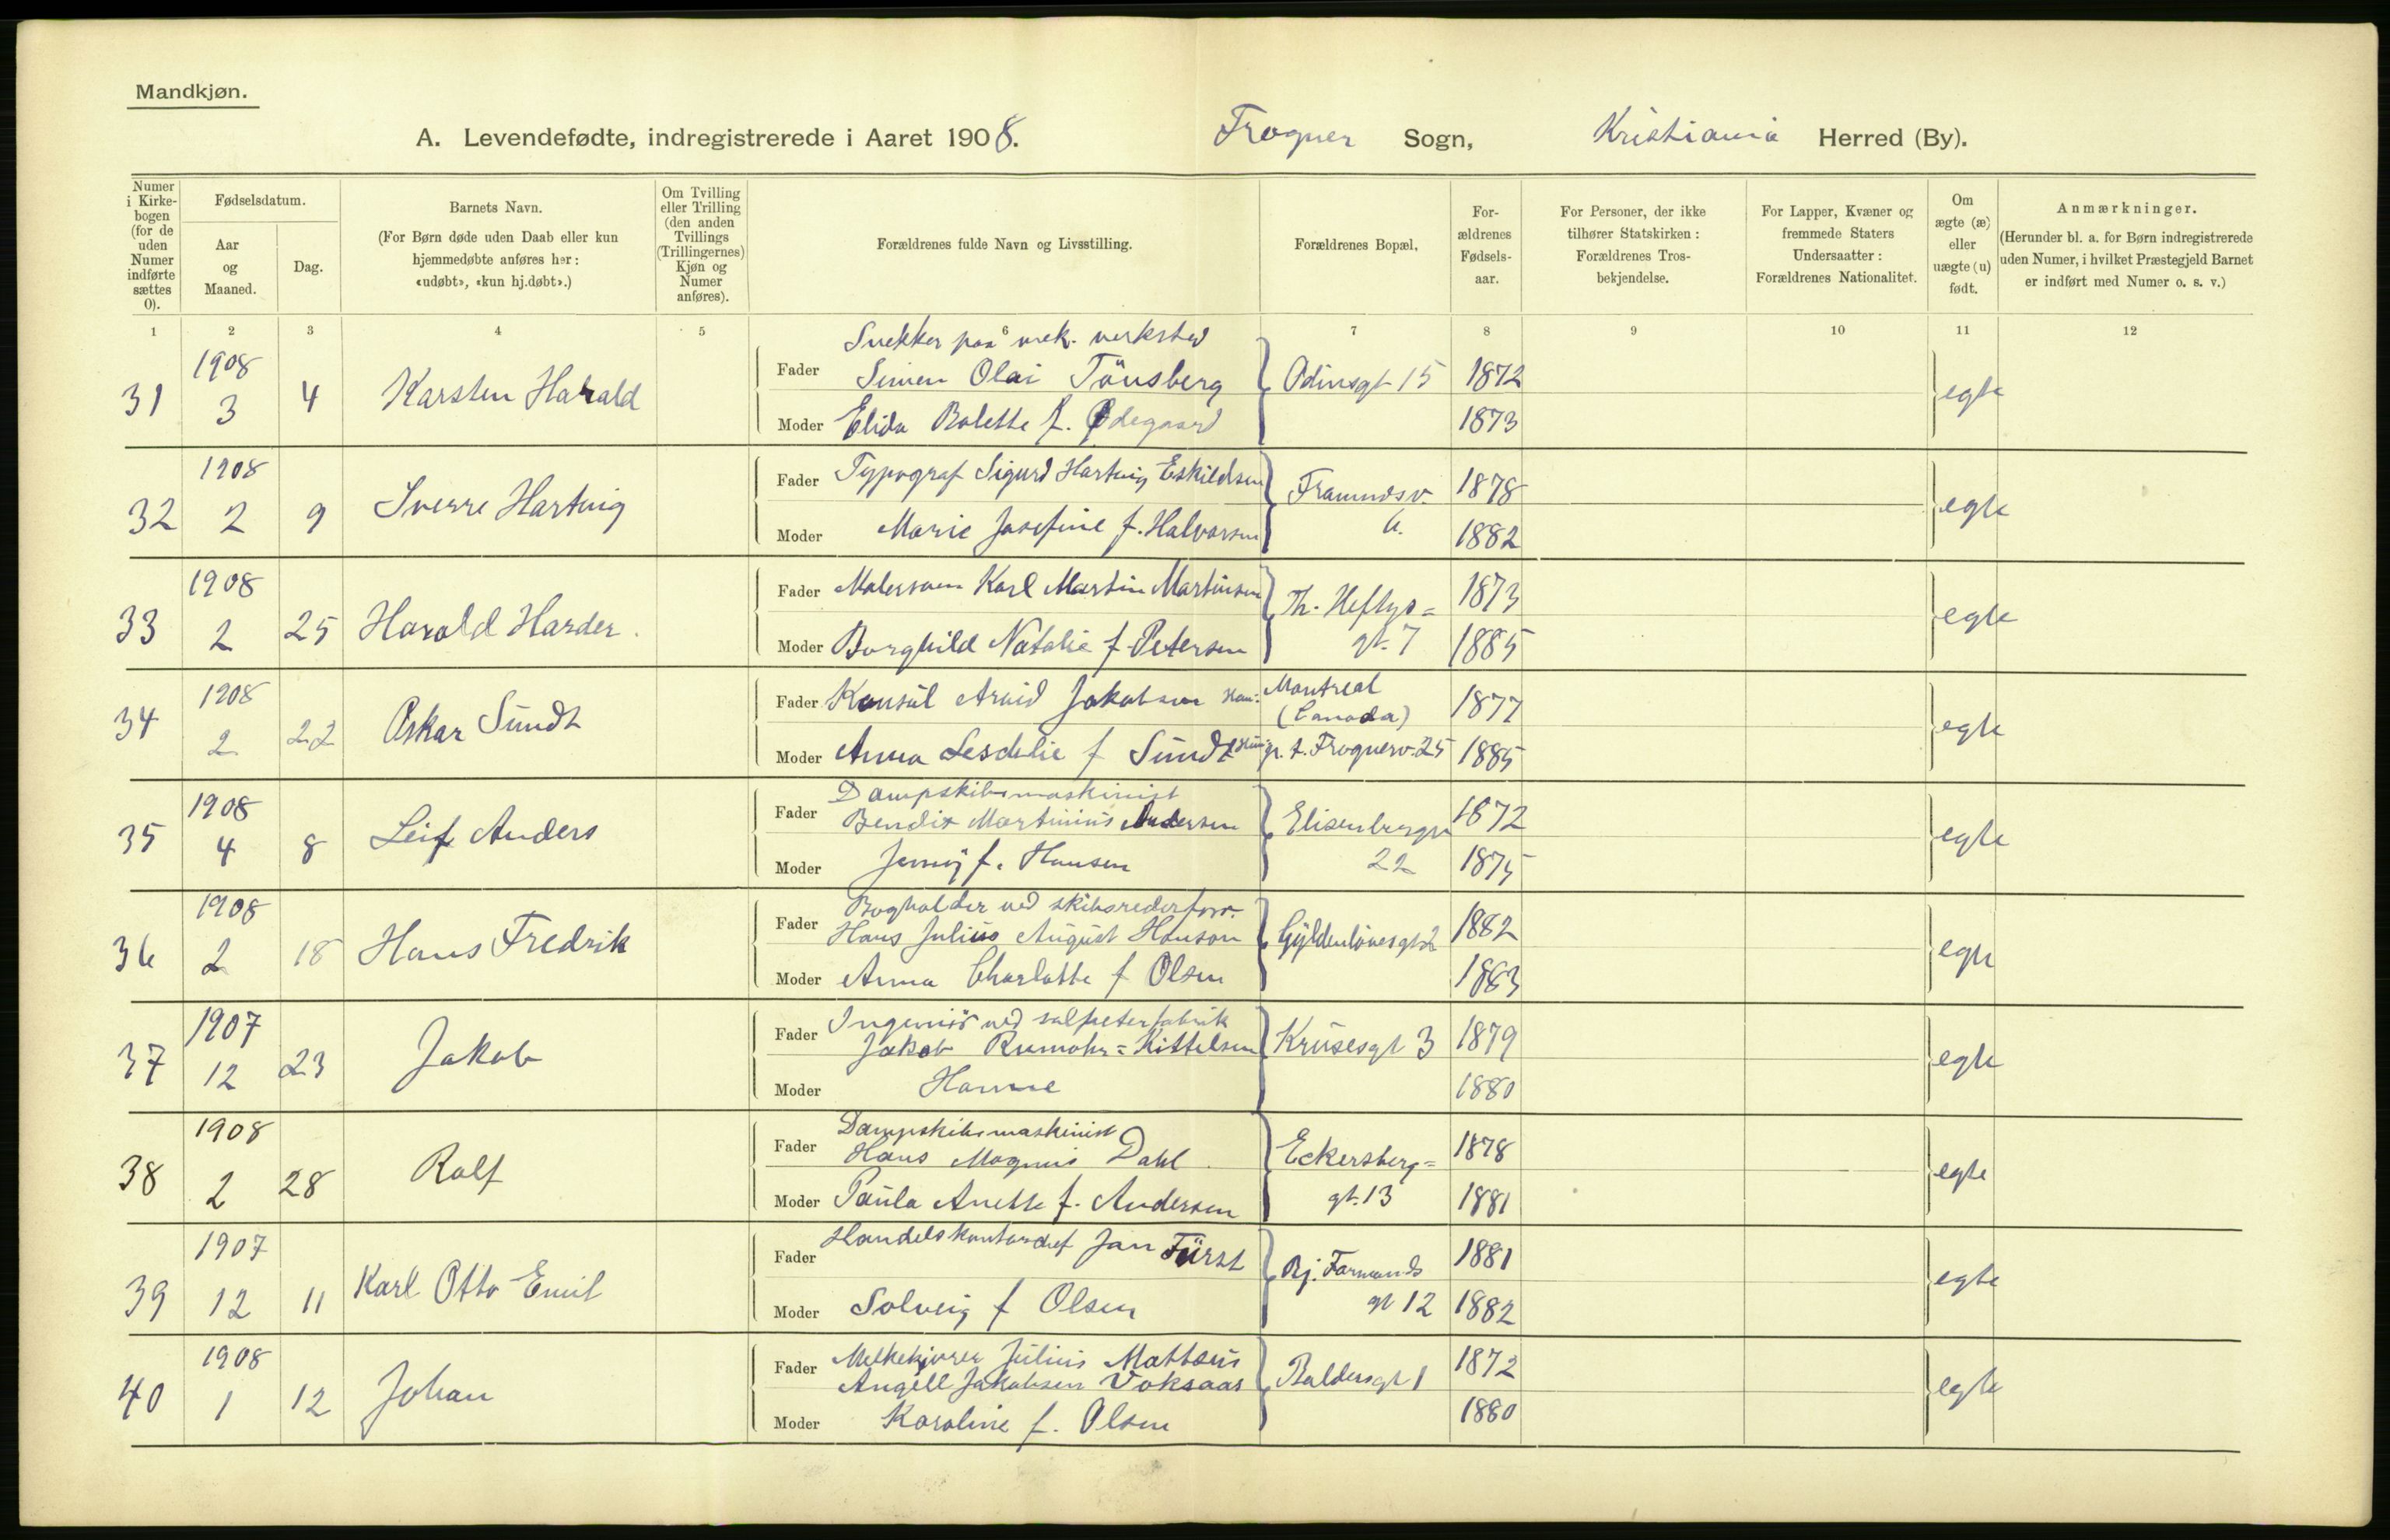 Mandkjøn.
A. Levendefødte, indregistrerede i Aaret 1908. Frogner Sogn, Kristiania Herred (By).
Numer i Kirkebogen (for de uden Numer indførte sættes 0).
Fødselsdatum.
Aar og Maaned.
Dag.
Barnets Navn.
(For Børn døde uden Daab eller kun hjemmedøbte anføres her: «udøbt», «kun hj.døbt».)
Om Tvilling eller Trilling (den anden Tvillings (Trillingernes) Kjøn og Numer anføres).
Forældrenes fulde Navn og Livsstilling.
Forældrenes Bopæl.
Forældrenes Fødselsaar.
For Personer, der ikke tilhører Statskirken: Forældrenes Trosbekjendelse.
For Lapper, Kvæner og fremmede Staters Undersaatter: Forældrenes Nationalitet.
Om ægte (æ) eller uægte (u) født.
Anmærkninger.
(Herunder bl. a. for Børn indregistrerede uden Numer, i hvilket Præstegjeld Barnet er indført med Numer o. s. v.)
1 2 3 4 5 6 7 8 9 10 11 12
Snekker paa mek. verksted
31 1908 3 4 Karsten Harald Fader Simen Olai Tönsberg Odinsgt 15 1872 egte
Moder Elida Bolette f. Ødegaard 1873
32 1908 2 9 Sverre Hartvig Fader Typograf Sigurd Hartvig Eskildsen 1878 egte
Moder Marie Josefine f. Halvorsen 1882
33 1908 2 25 Harald Harder. Fader Malersven Karl Martin Martinsen Th. Heftys= 1873 egte
Moder Borghild Natalie f. Petersen gt. 7 1885
34 1908 2 22 Oskar Sundt Fader Konsul Arvid Jakobsen Montreal (Canada) 1877 egte
Moder Anna f Sundt p. t. Frognerv. 25 1885
Dampskibsmaskinist
35 1908 4 8 Leif Anders Fader Bendix Martinius Andersen Elisenbergv 1872 egte
Moder Jenny f. Hansen 22 1875
Bogholder ved skibsrederforr.
36 1908 2 18 Hans Fredrik Fader Hans Julius August Hanson Gyldenlövesgt 2 1882 egte
Moder Anna Charlotte f Olsen 1883
Ingeniör ved salpeterfabrik
37 1907 12 23 Jakob Fader Jakob Rumohr=Kittelsen Krusesgt 3 1879 egte
Moder Hanne 1880
Dampskibsmaskinist
38 1908 2 28 Rolf Fader Hans Magnus Dahl. Eckersberg= 1878 egte
Moder Paula Anette f. Andersen gt. 13 1881
39 1907 12 11 Karl Otto Emil Fader Handelskontorchef Jan Fürst Bj. Farmands 1881 egte
Moder Solveig f Olsen gt 12 1882
40 1908 1 12 Johan Fader Melkekjører Julius Mattæus Baldersgt 1 1872 egte
Angell Jakobsen Voksaas
Moder Karoline f. Olsen 1880